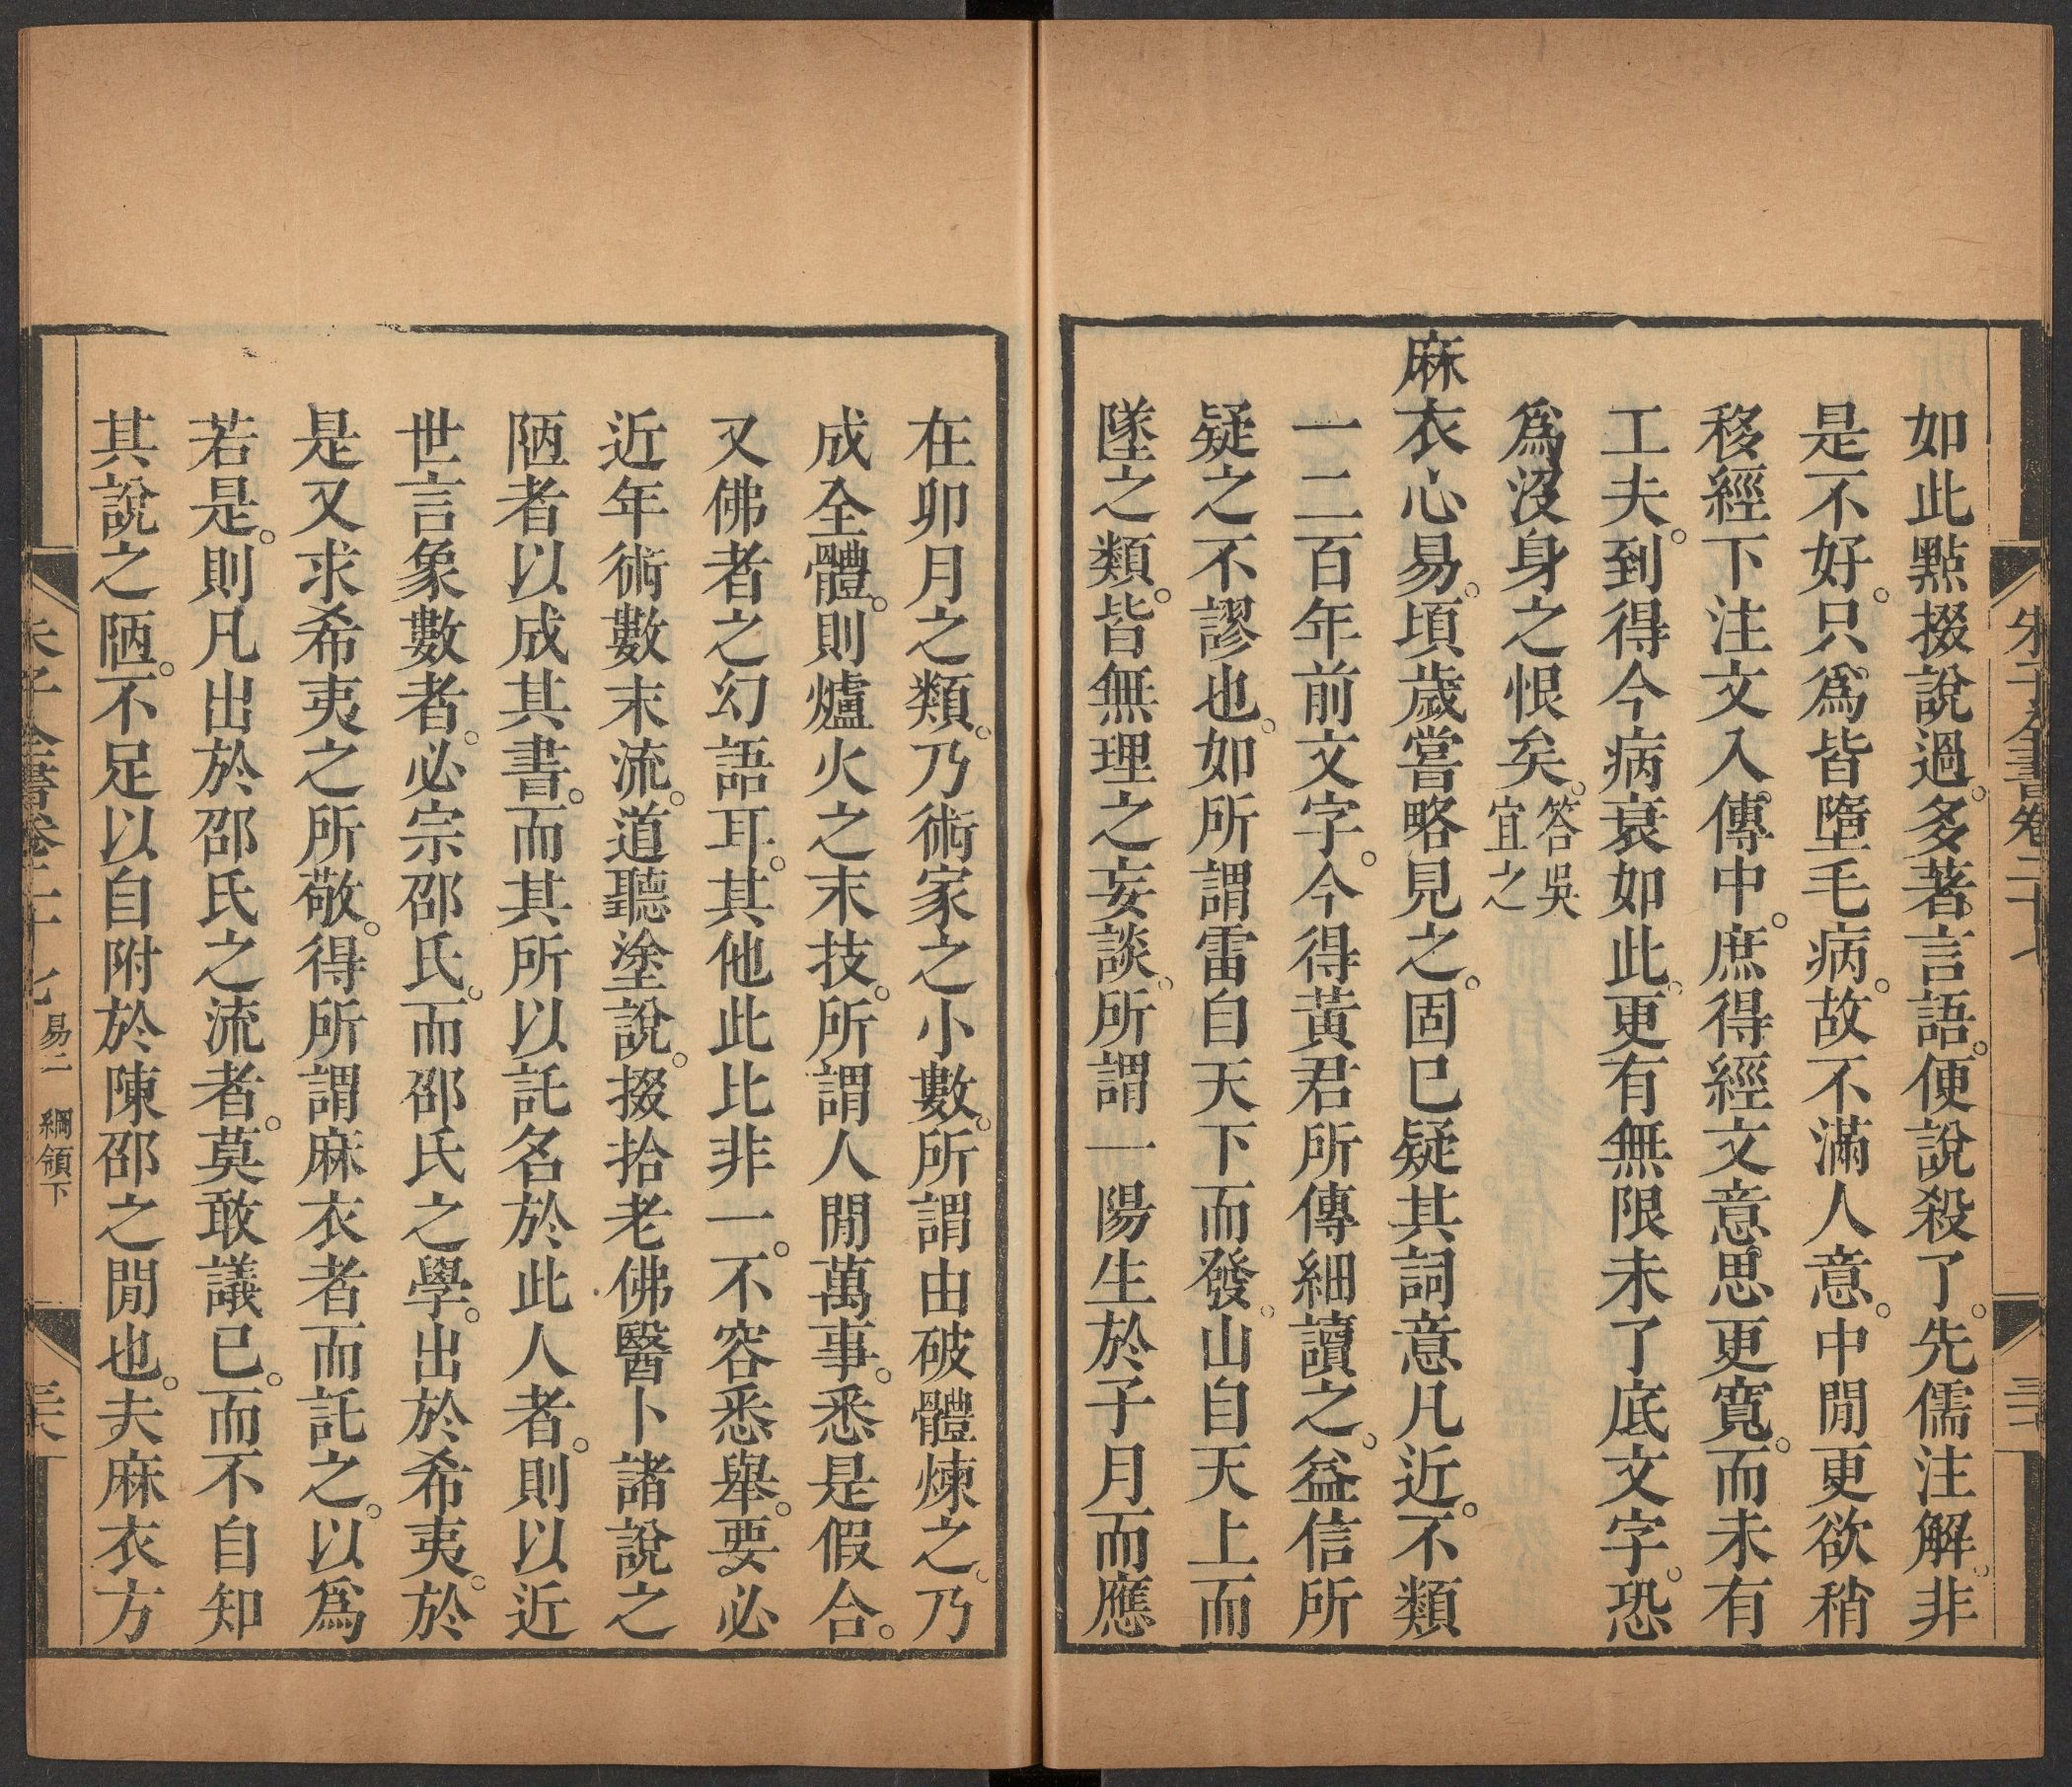 如此點掇說過。多著言語。便說殺了。先儒注解。非
是不好。只爲皆墮毛病。故不滿人意。中閒更欲稍
移經下注文入傳中。庶得經文意思更寬。而未有
工夫。到得今病衰如此。更有無限未了底文字。恐
爲沒身之恨矣。答吳宜之
麻衣心易。頃歲嘗略見之。固已疑其詞意凡近。不類
一二百年前文字。今得黃君所傳細讀之。益信所
疑之不謬也。如所謂雷自天下而發。山自天上而
墜之類。皆無理之妄談。所謂一陽生於子月而應
在卯月之類。乃術家之小數。所謂由破體煉之。乃
成全體。則爐火之末技。所謂人閒萬事。悉是假合。
又佛者之幻語耳。其他此比非一。不容悉舉。要必
近年術數末流。道聽塗說。掇拾老佛醫卜諸說之
陋者以成其書。而其所以託名於此人者。則以近
世言象數者。必宗邵氏。而邵氏之學。出於希夷。於
是又求希夷之所敬。得所謂麻衣者而託之。以爲
若是。則凡出於邵氏之流者。莫敢議已。而不自知
其說之陋。不足以自附於陳邵之閒也。夫麻衣方
易二 綱領下